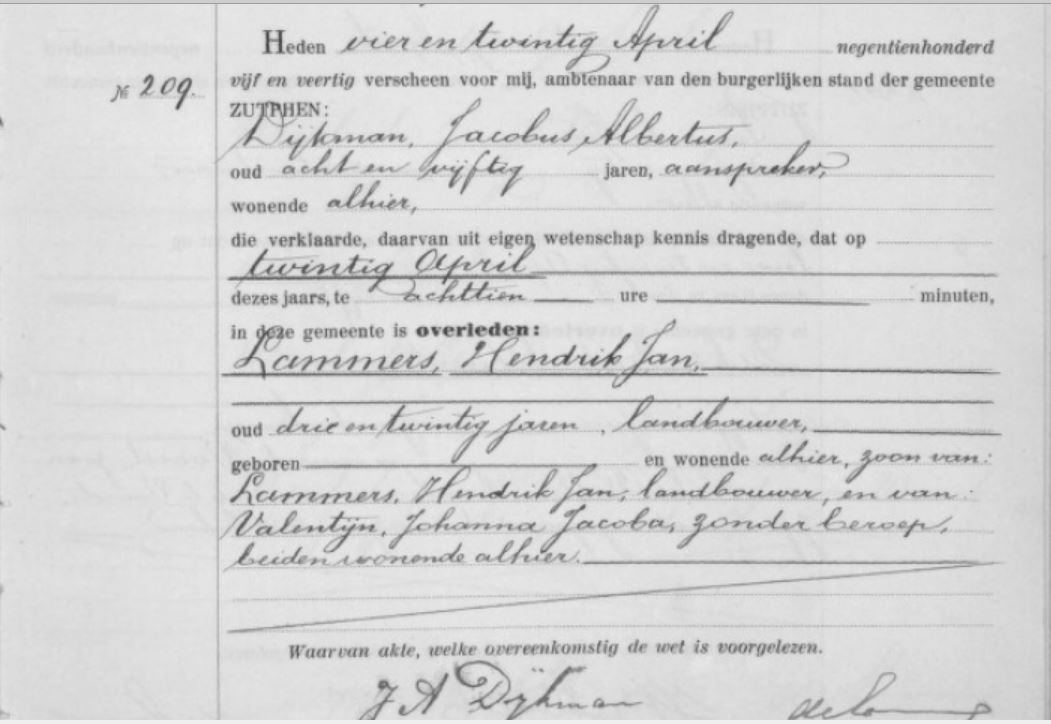 Heden vier en twintig April negentienhonderd
№ 209. vijf en veertig verscheen voor mij, ambtenaar van den burgerlijken stand der gemeente
ZUTPHEN:
Dijkman, Jacobus Albertus,
oud acht en vijftig jaren, aanspreker,
wonende alhier,
die verklaarde, daarvan uit eigen wetenschap kennis dragende, dat op
twintig April
dezes jaars, te achttien ure minuten,
in deze gemeente is overleden:
Lammers, Hendrik Jan,
oud drie en twintig jaren, landbouwer,
geboren en wonende alhier, zoon van:
Lammers, Hendrik Jan, landbouwer, en van:
Valentijn, Johanna Jacoba, zonder beroep,
beiden wonende alhier.
Waarvan akte, welke overeenkomstig de wet is voorgelezen.
J A Dijkman